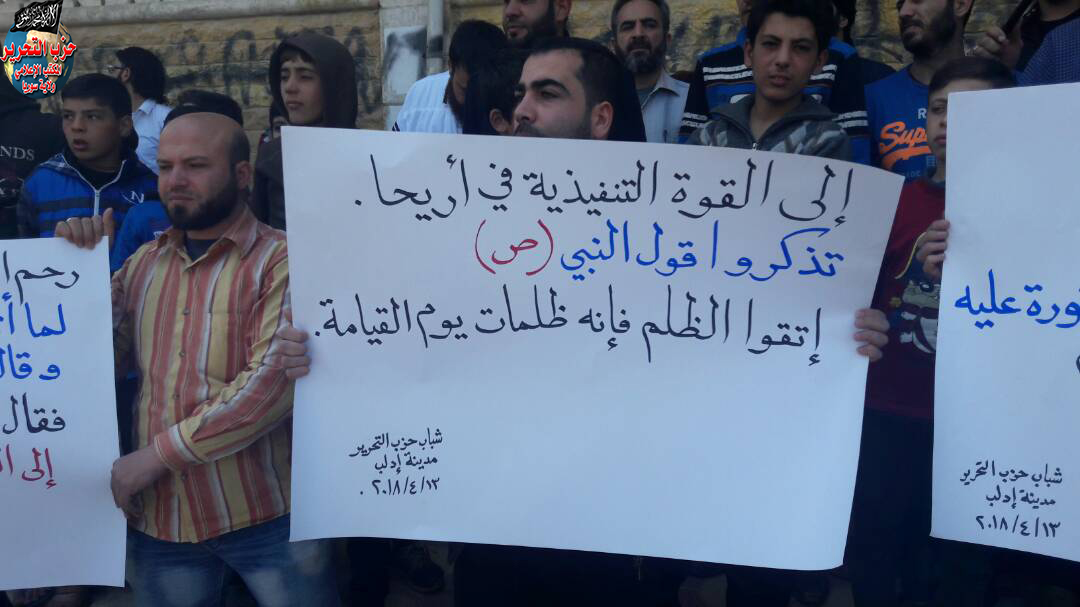 حزب التحرير
المكتب الإعلامي
ولاية سوريا
إلى القوة التنفيذية في أريحا.
تذكروا قول النبي (ص)
إتقوا الظلم فإنه ظلمات يوم القيامة.
شباب حزب التحرير
مدينة إدلب
٢٠١٨/٤/١٣ .
رحم ا
لما أ
وقال
فقال
إلى ا
ورة عليه
شباب حزب التحرير
مدينة إدلب
٢٠١٨/٤/١٣
Super
NDS
N